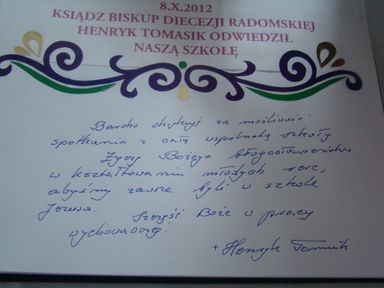 8.X.2012
KSIĄDZ BISKUP DIECEZJI RADOMSKIEJ
HENRYK TOMASIK ODWIEDZIŁ
NASZĄ SZKOŁĘ
Bardzo dziękuję za możliwość
spotkania z całą wspólnotą szkoły.
Życzę Bożego błogosławieństwa
w kształtowaniu młodych serc,
abyśmy zawsze byli w szkole
Jezusa.
Szczęść Boże w pracy
wychowawczej
+ Henryk Tomasik